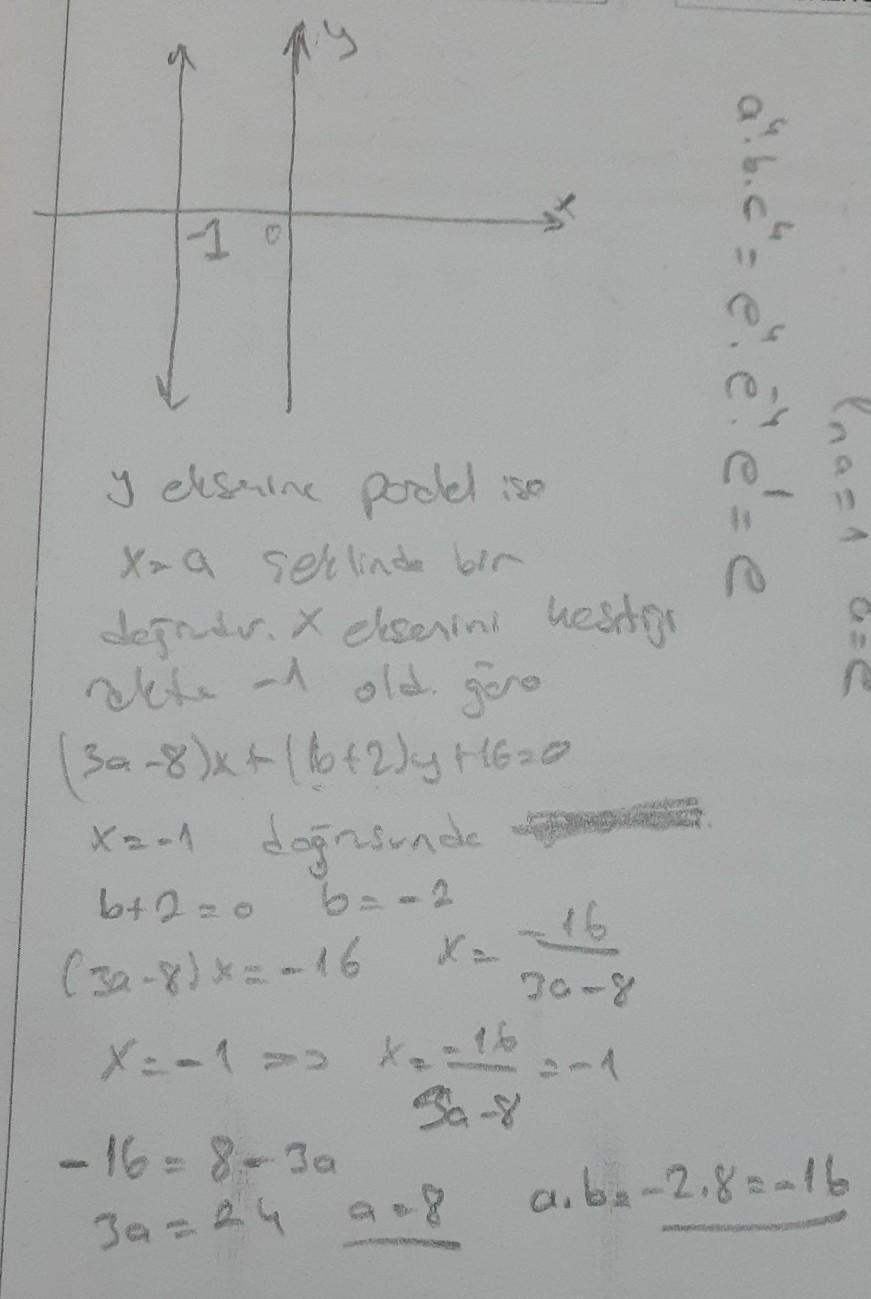 y
x
-1 0
y eksenine paralel ise
x=a şeklinde bir
doğrudur. X eksenini kestiği
nokta -1 old. göre
(3a-8)x+(b+2)y+16=0
x=-1 doğrusunda
b+2=0 b=-2
(3a-8)x=-16 x=-16/3a-8
x=-1 => x=-16/3a-8=-1
-16=8-3a
3a=24 a=8 a.b=-2.8=-16
lna=1 a=e
a⁴.b.c⁴=e⁴.e⁻⁴.e¹=e